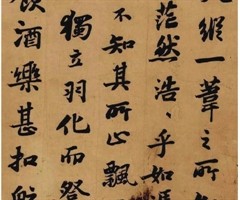 縱一葦之所
茫然浩〻乎如
不知其所止飄
獨立羽化而登
飲酒樂甚扣舷